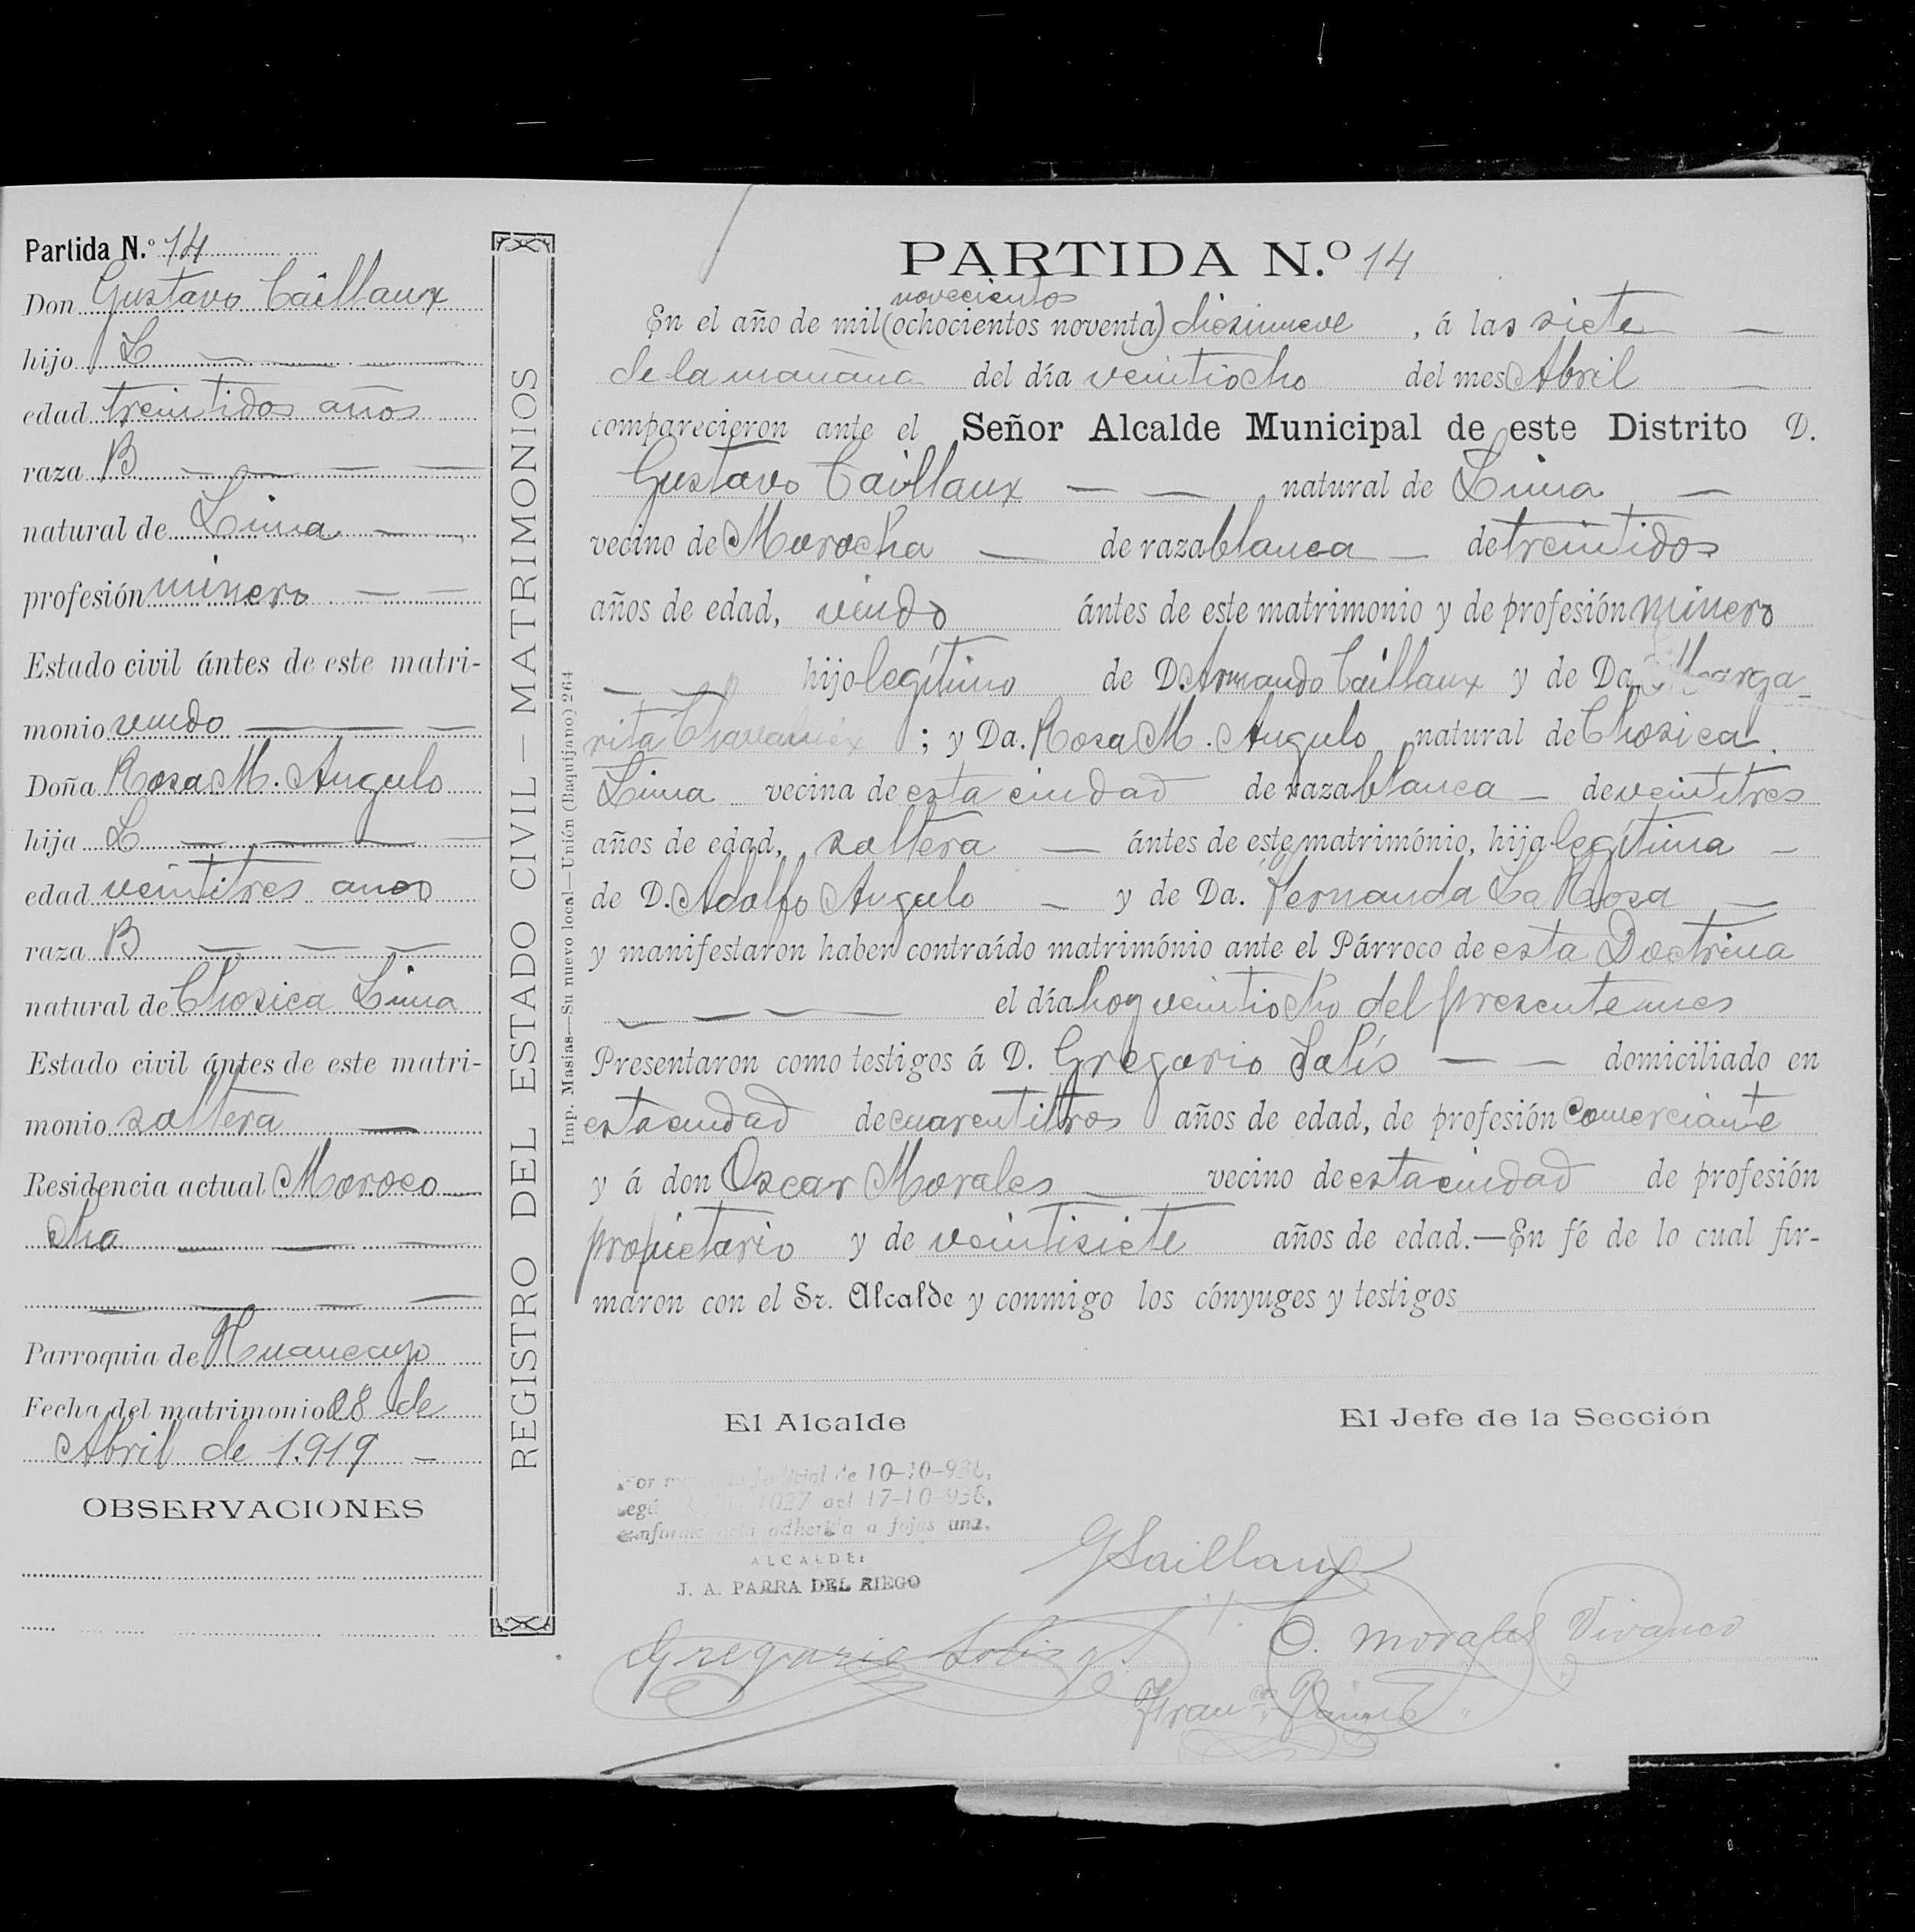 Partida N.° 14
Don Gustavo Caillaux
hijo L
edad treintidos años
raza B
natural de Lima
profesión minero
Estado civil ántes de este matri-
monio viudo
Doña Rosa M. Angulo
hija L
edad veintitres años
raza B
natural de Chosica Lima
Estado civil ántes de este matri-
monio soltera
Residencia actual Moroco
cha
Parroquia de Huancayo
Fecha del matrimonio 28 de
Abril de 1.919
OBSERVACIONES
REGISTRO DEL ESTADO CIVIL—MATRIMONIOS
Imp. Masías—Su nuevo local—Unión (Baquijano) 264
PARTIDA N.° 14
novecientos
En el año de mil (ochocientos noventa) diesinueve, á las siete
de la mañana del día veintiocho del mes Abril
comparecieron ante el Señor Alcalde Municipal de este Distrito D.
Gustavo Caillaux natural de Lima
vecino de Morocha de raza blanca de treintidos
años de edad, viudo ántes de este matrimonio y de profesión minero
hijo legítimo de D. Armando Caillaux y de Da. Marga-
rita ; y Da. Rosa M. Angulo natural de Chosica.
Lima vecina de esta ciudad de raza blanca de veintitres
años de edad, soltera ántes de este matrimónio, hija legítima
de D. Adolfo Angulo y de Da. Fernanda La Rosa
y manifestaron haber contraído matrimónio ante el Párroco de esta Doctrina
el día hoy veintiocho del presente mes
Presentaron como testigos á D. Gregorio Solís domiciliado en
esta ciudad de cuarentitres años de edad, de profesión Comerciante
y á don Oscar Morales vecino de esta ciudad de profesión
propietario y de veintisiete años de edad.—En fé de lo cual fir-
maron con el Sr. Alcalde y conmigo los cónyuges y testigos
El Alcalde
El Jefe de la Sección
de 10-10-936.
1027 del 17-10-936.
conforme acta adherida a fojas una.
ALCALDE:
J. A. PARRA DEL RIEGO
G Caillaux
Gregorio Solis
O. Morales Vivanco